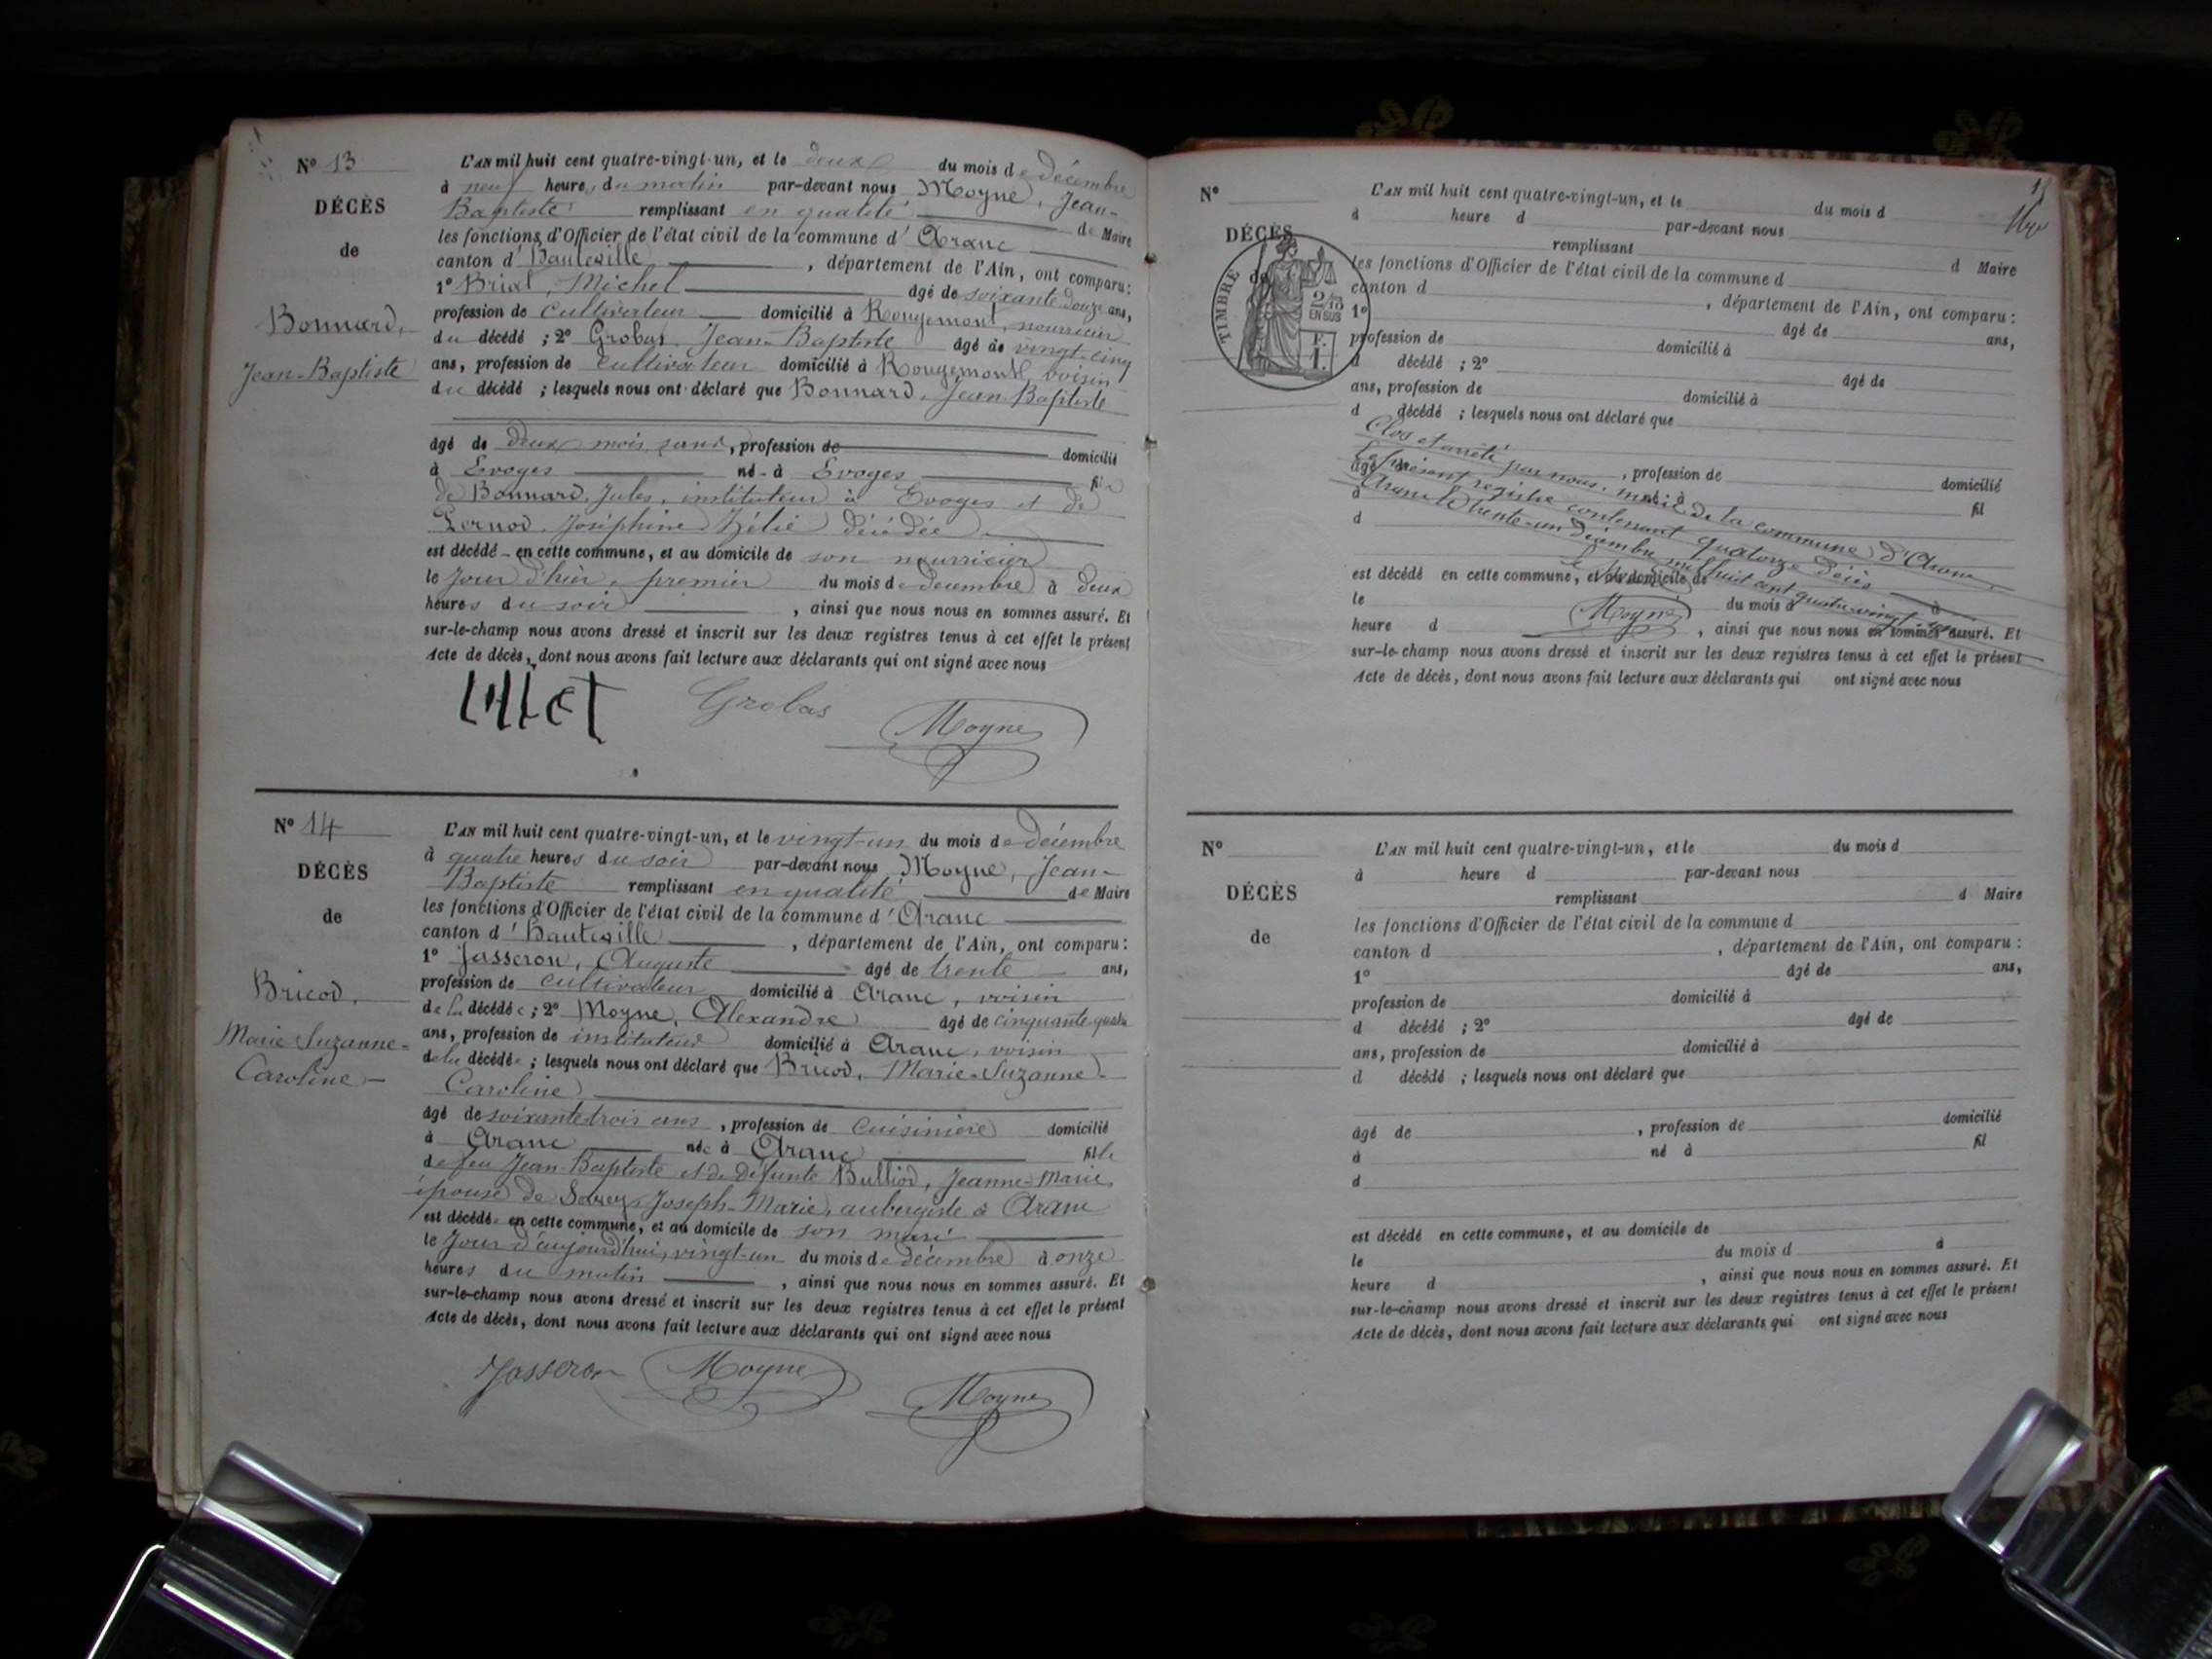 Nº 13
DÉCÈS
de
Bonnard,
Jean-Baptiste
L'AN mil huit cent quatre-vingt-un, et le deux du mois de Décembre
à neuf heures du matin par-devant nous Moyne, Jean-
Baptiste remplissant en qualité de Maire
les fonctions d'Officier de l'état civil de la commune d'Aranc
canton d'Hauteville, département de l'Ain, ont comparu :
1º Michel âgé de soixante douze ans,
profession de cultivateur domicilié à Rougemont, nourricier
du décédé ; 2º Grobas, Jean-Baptiste âgé de vingt-cinq
ans, profession de cultivateur domicilié à Rougemont voisin
du décédé ; lesquels nous ont déclaré que Bonnard, Jean-Baptiste
âgé de deux mois, profession de domicilié
à Evoges né à Evoges fils
de Bonnard, Jules, instituteur à Evoges et de
Joséphine Zélie décédée
est décédé en cette commune, et au domicile de son nourricier
le jour d'hier, premier du mois de décembre à deux
heures du soir, ainsi que nous nous en sommes assuré. Et
sur-le-champ nous avons dressé et inscrit sur les deux registres tenus à cet effet le présent
Acte de décès, dont nous avons fait lecture aux déclarants qui ont signé avec nous
Grobas Moyne
Nº 14
DÉCÈS
de
Bricod,
Marie Suzanne-
Caroline
L'AN mil huit cent quatre-vingt-un, et le vingt-un du mois de Décembre
à quatre heures du soir par-devant nous Moyne, Jean-
Baptiste remplissant en qualité de Maire
les fonctions d'Officier de l'état civil de la commune d'Aranc
canton d'Hauteville, département de l'Ain, ont comparu :
1º Jasseron, Auguste âgé de trente ans,
profession de cultivateur domicilié à Aranc, voisin
de la décédée ; 2º Moyne, Alexandre âgé de cinquante-quatre
ans, profession de instituteur domicilié à Aranc, voisin
de la décédée ; lesquels nous ont déclaré que Bricod, Marie-Suzanne-
Caroline
âgé de soixante trois ans, profession de Cuisinière domicilié
à Aranc née à Aranc fille
de feu Jean-Baptiste et de défunte Bulliod, Jeanne-Marie,
épouse de Savey, Joseph-Marie, aubergiste à Aranc
est décédée en cette commune, et au domicile de son mari
le jour d'aujourd'hui, vingt-un du mois de décembre à onze
heures du matin, ainsi que nous nous en sommes assuré. Et
sur-le-champ nous avons dressé et inscrit sur les deux registres tenus à cet effet le présent
Acte de décès, dont nous avons fait lecture aux déclarants qui ont signé avec nous
Jasseron Moyne Moyne
13
Nº
DÉCÈS
de
TIMBRE
2/10
EN SUS
F.
1.
L'AN mil huit cent quatre-vingt-un, et le du mois d
à heure d par-devant nous
remplissant d Maire
les fonctions d'Officier de l'état civil de la commune d
canton d , département de l'Ain, ont comparu :
1º âgé de ans,
profession de domicilié à
d décédé ; 2º âgé de
ans, profession de domicilié à
d décédé ; lesquels nous ont déclaré que
Clos et arrêté par nous, maire de la commune d'Aranc
le présent registre contenant quatorze décès
Aranc le trente-un décembre mil huit cent quatre-vingt-un
âgé de , profession de domicilié
à né à fil
d
est décédé en cette commune, et au domicile de
le du mois d à
heure d , ainsi que nous nous en sommes assuré. Et
Moyne
sur-le-champ nous avons dressé et inscrit sur les deux registres tenus à cet effet le présent
Acte de décès, dont nous avons fait lecture aux déclarants qui ont signé avec nous
Nº
DÉCÈS
de
L'AN mil huit cent quatre-vingt-un, et le du mois d
à heure d par-devant nous
remplissant d Maire
les fonctions d'Officier de l'état civil de la commune d
canton d , département de l'Ain, ont comparu :
1º âgé de ans,
profession de domicilié à
d décédé ; 2º âgé de
ans, profession de domicilié à
d décédé ; lesquels nous ont déclaré que
âgé de , profession de domicilié
à né à fil
d
est décédé en cette commune, et au domicile de
le du mois d à
heure d , ainsi que nous nous en sommes assuré. Et
sur-le-champ nous avons dressé et inscrit sur les deux registres tenus à cet effet le présent
Acte de décès, dont nous avons fait lecture aux déclarants qui ont signé avec nous